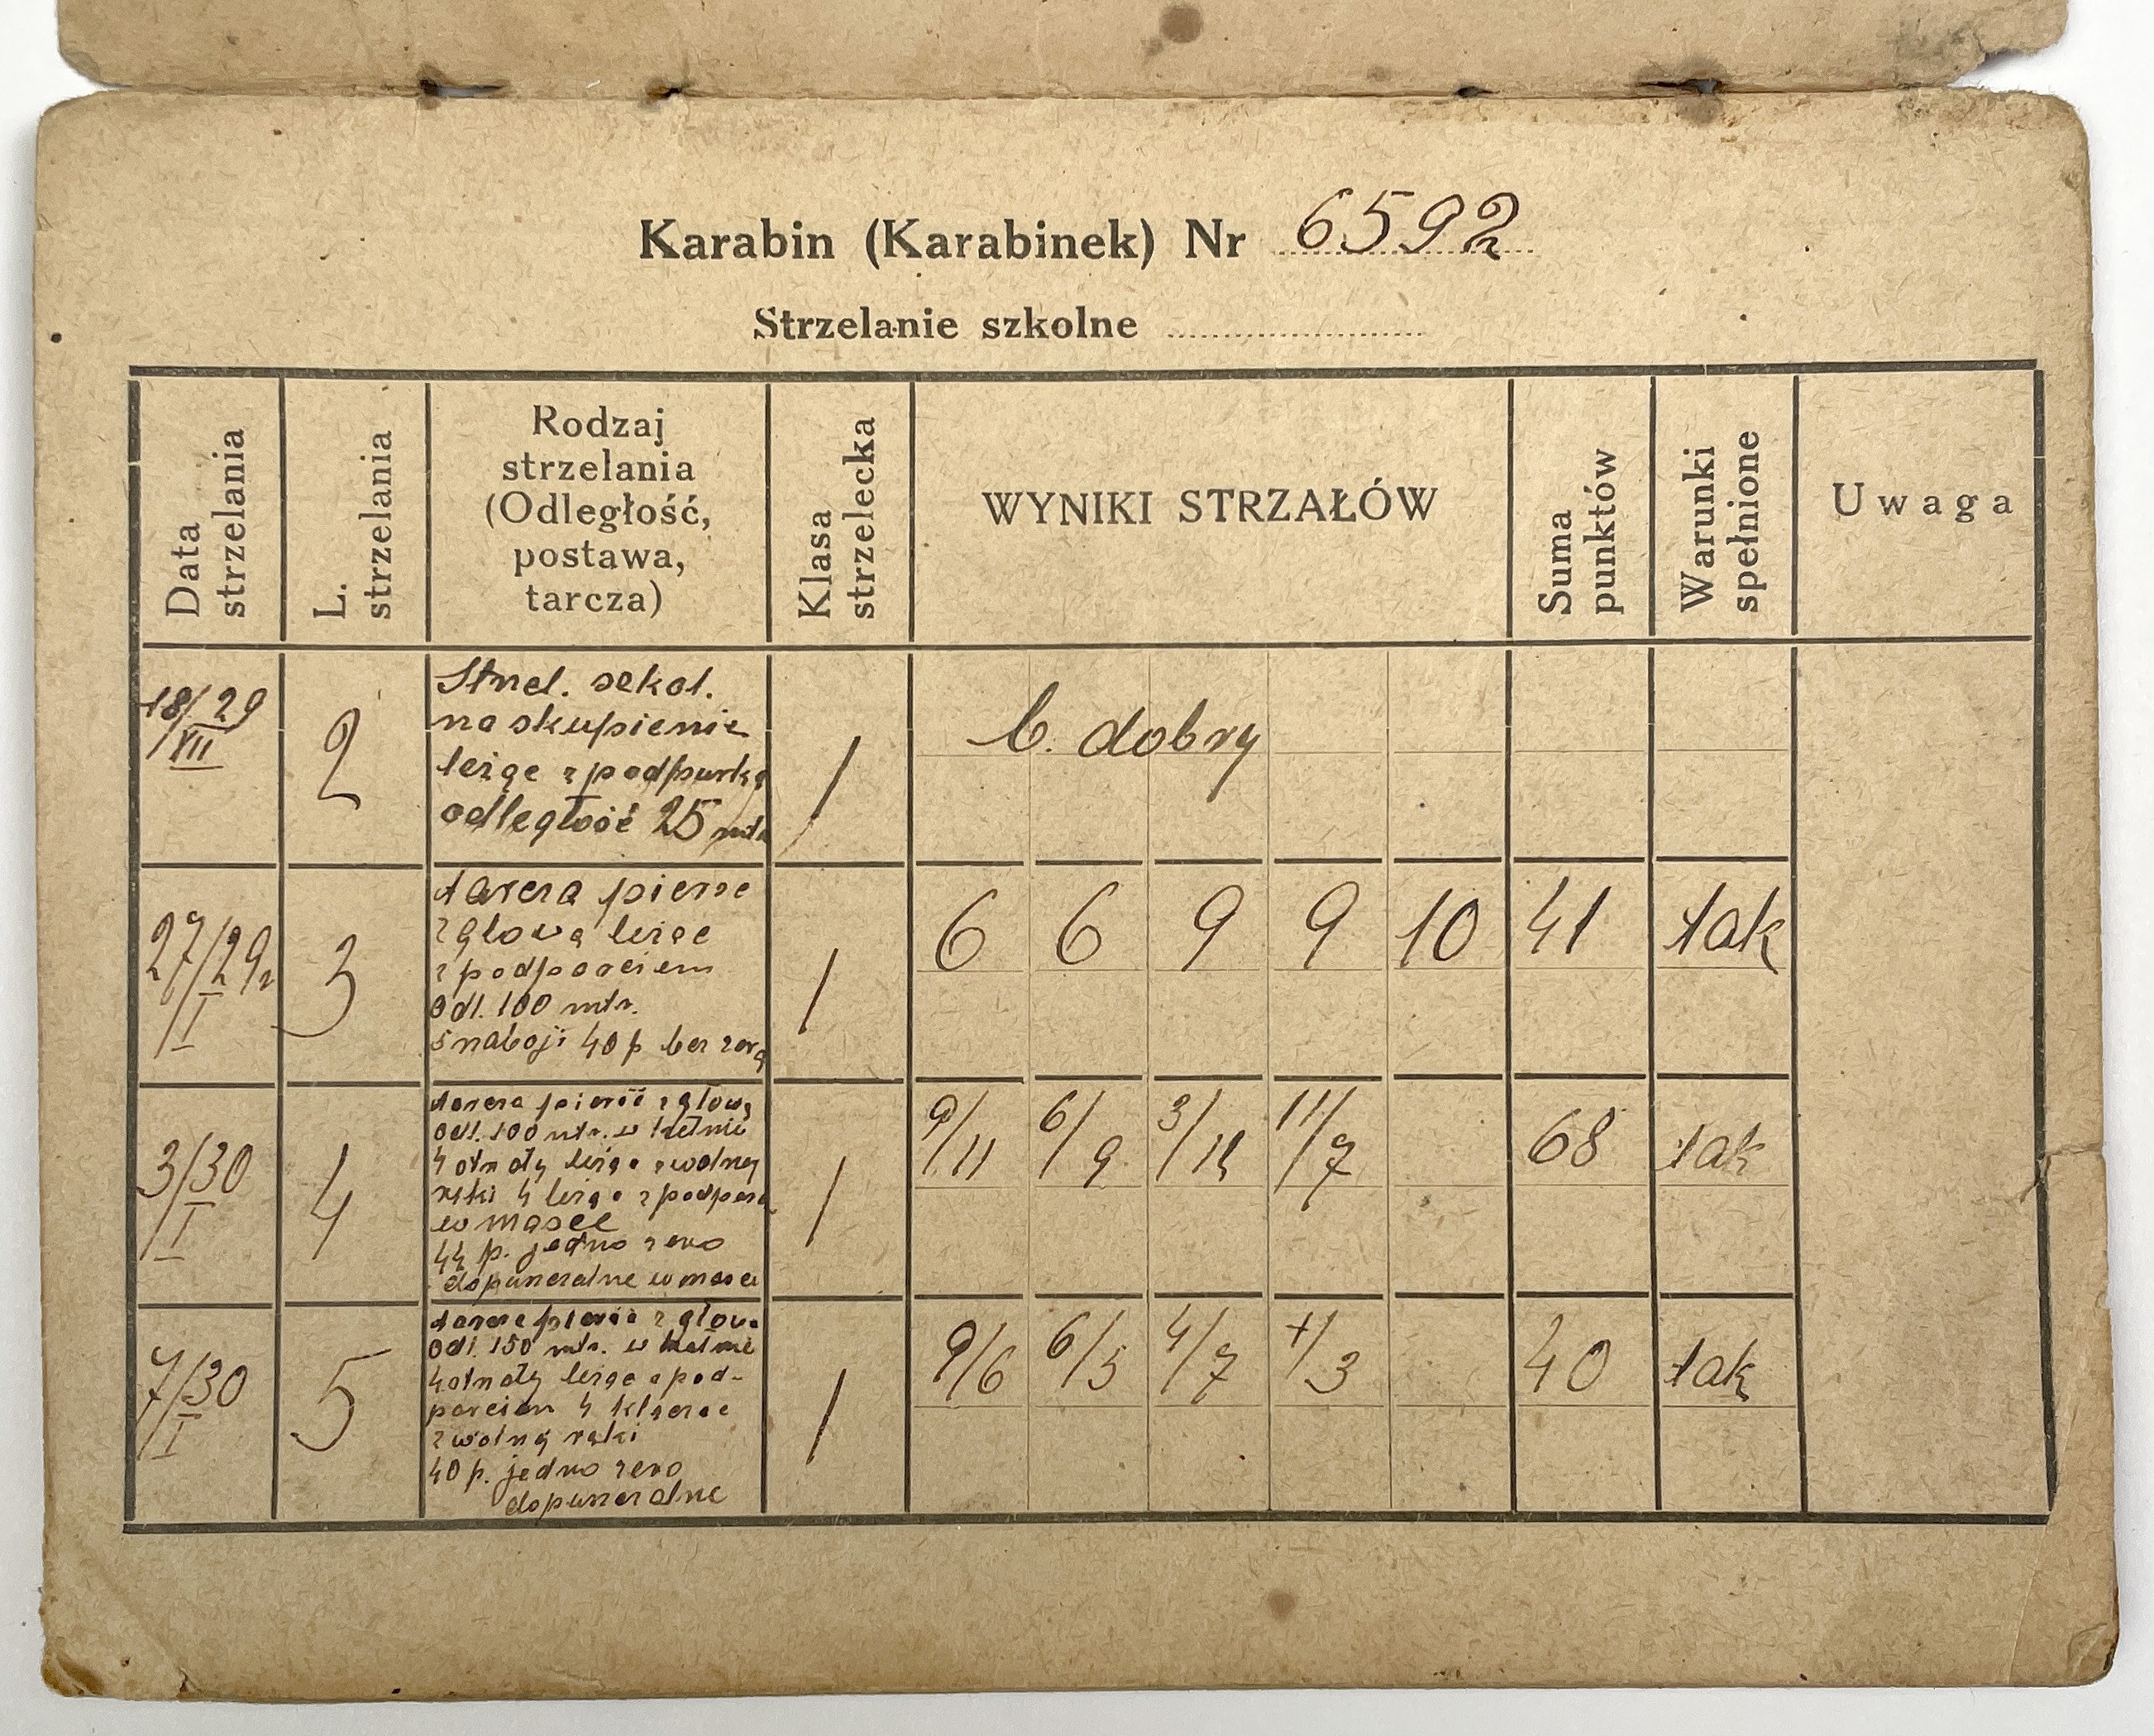 Karabin (Karabinek) Nr 6592
Strzelanie szkolne
Data strzelania
L. strzelania
Rodzaj
strzelania
(Odległość,
postawa,
tarcza)
Klasa strzelecka
WYNIKI STRZAŁÓW
Suma punktów
Warunki spełnione
Uwaga
18/29
VII
2
Strzel. szkol.
na skupienie
leżąc z podpurką
odległość 25 mtr
1
b. dobry
27/29r
I
3
tarcza pierse
z głową leżąc
z podparciem
odl. 100 mtr.
5 naboji 40 p bez zera
1
6 6 9 9 10 41 tak
3/30
I
4
tarcza pierś z głową
odl. 100 mtr. w
4 leżąc z wolnej
ręki 4 leżąc z
w masce
44 p. jedno zero
dopuszczalne w masce
1
9/11 6/9 3/12 11/7 68 tak
7/30
I
5
tarcza pierś z głową
odl. 150 mtr. w
leżąc z pod-
parciem 4 klęcząc
z wolnej ręki
40 p. jedno zero
dopuszczalne
1
9/6 6/5 4/7 +/3 40 tak